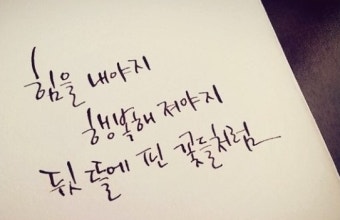 힘을 내야지
행복해 져야지
뒷뜰에 핀 꽃들처럼